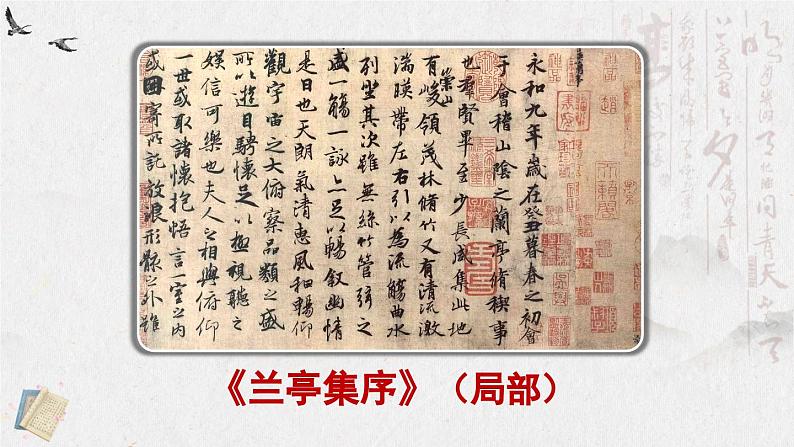 永和九年歲在癸丑暮春之初會
于會稽山陰之蘭亭脩稧事
也羣賢畢至少長咸集此地
有崇山峻領茂林脩竹又有清流激
湍暎帶左右引以為流觴曲水
列坐其次雖無絲竹管弦之
盛一觴一詠亦足以暢叙幽情
是日也天朗氣清惠風和暢仰
觀宇宙之大俯察品類之盛
所以遊目騁懷足以極視聽之
娛信可樂也夫人之相與俯仰
一世或取諸懷抱悟言一室之內
或因寄所託放浪形骸之外雖
《兰亭集序》（局部）